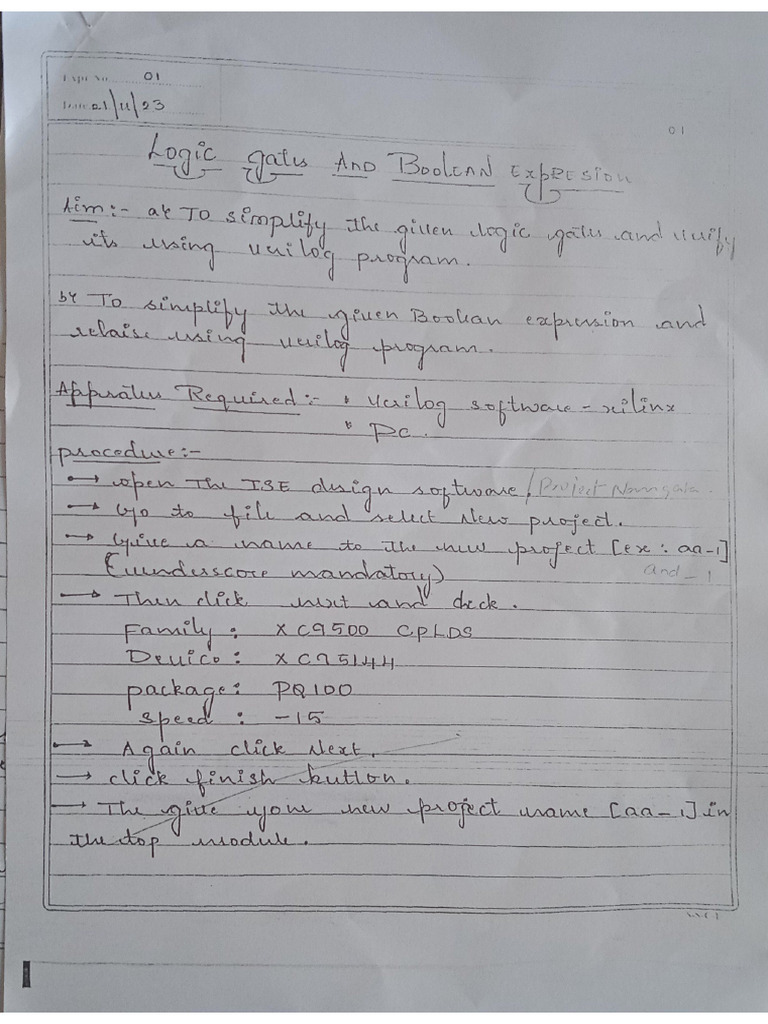 Expt No. 01
Date 01/11/23
01
Logic gates AND BOOLEAN ExpRESION
Aim:- a> TO simplify the given logic gates and verify
its using verilog program.
b> To simplify the given Boolean expression and
relaise using verilog program.
Appratus Required:- • verilog software - xilinx
• PC.
procedure:-
→ open The ISE design software / Project Navigator
→ Go to file and select New project.
→ Give a name to the new project [ex: aa-1]
(underscore mandatory) and_1
→ Then click next and check.
Family: XC9500 CPLDS
Device: XC95144
package: PQ100
speed: -15
→ Again click Next.
→ click finish button.
→ The give your new project name [aa-1] in
the top module.